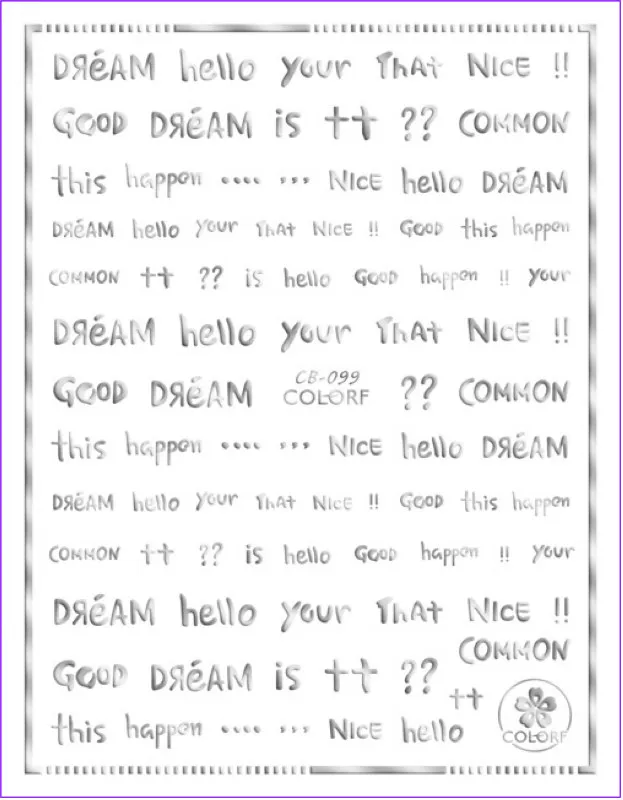 DЯéAM hello your ThAt NICE !!
GOOD DЯéAM is tt ?? COMMON
this happen •••• ,,, NICE hello DЯéAM
DЯéAM hello your ThAt NICE !! GOOD this happen
COMMON tt ?? is hello GOOD happen !! your
DЯéAM hello your ThAt NICE !!
GOOD DЯéAM CB-099 COLORF ?? COMMON
this happen •••• ,,, NICE hello DЯéAM
DЯéAM hello your ThAt NICE !! GOOD this happen
COMMON tt ?? is hello GOOD happen !! your
DЯéAM hello your ThAt NICE !!
COMMON
GOOD DЯéAM is tt ??
tt
this happen •••• ,,, NICE hello
COLORF